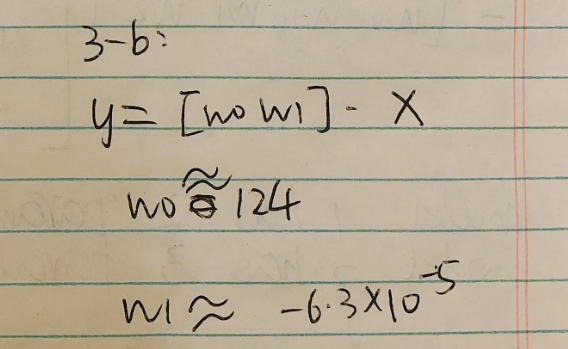 3-b:
y = [w0 w1] - X
w0 ≈ 124
w1 ≈ -6.3×10⁻⁵